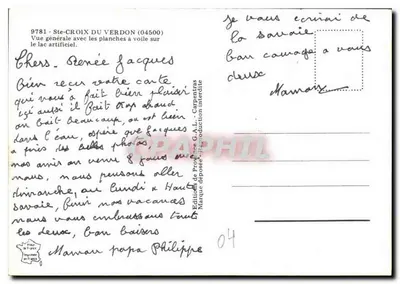 9781 - Ste-CROIX DU VERDON (04500)
Vue générale avec les planches à voile sur
le lac artificiel.
Chers - Renée Jacques
Bien reçu votre carte
qui nous a fait bien plaisir
ici aussi il fait trop chaud
on boit beaucoup, on est bien
dans l'eau, espère que Jacques
a pris des belles photos,
nos amis on venu 8 jours avec
nous, nous pensons aller
dimanche, ou lundi Haute
Savoie, finir nos vacances
nous vous embrassons tout
les deux, bon baisers
Maman papa Philippe
je vous écrirai de
la Savoie
bon courage a vous
deux
Maman
Editions de Provence G. AL. - Carpentras
Marque déposée - Reproduction interdite
CPAPHIL
04